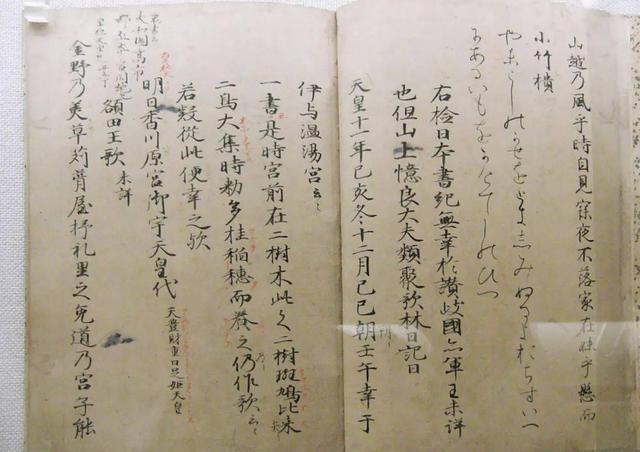 山越乃風乎時自見寐夜不落家在妹乎懸而
小竹樻
やまこしのかせをときしみぬるよおちすいへ
にあるいもをかけてしのひつ
右捡日本書紀無幸於讃岐國亦軍王未詳
也但山上憶良大夫類聚歌林曰記曰
天皇十一年己亥冬十二月己巳朝壬午幸于
伊与温湯宮云々
一書是時宮前在二樹木此之二樹斑鳩比米
二鳥大集時勅多桂稲穂而養之仍作歌云々
若疑從此便幸之歟
明日香川原宮御宇天皇代 天豊財重日足姫天皇
額田王歌 未詳
金野乃美草苅葺屋杼礼里之兎道乃宮子能